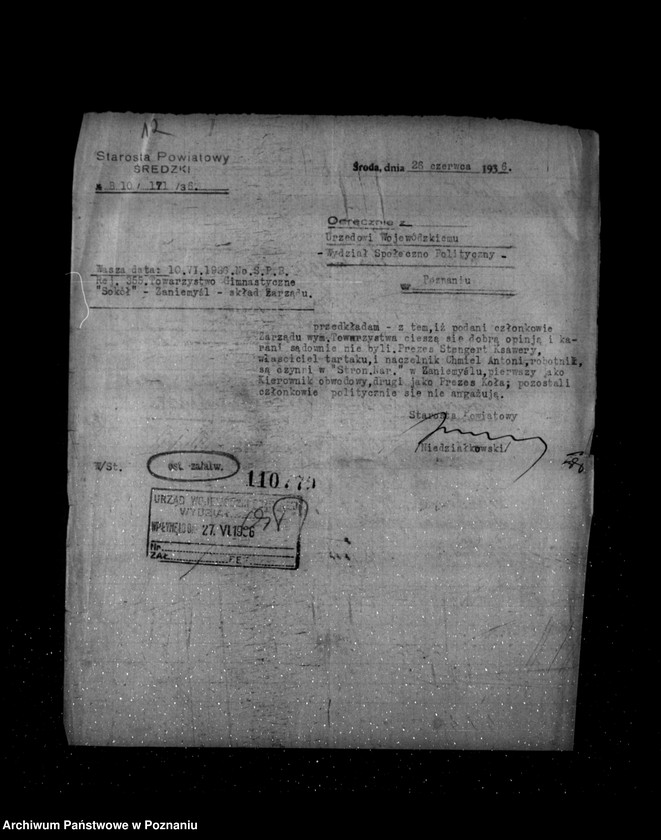 12
Starosta Powiatowy
ŚREDZKI
B 10/ 171 /36.
Środa, dnia 26 czerwca 1936.
Odręcznie z
Urzędowi Wojewódzkiemu
- Wydział Społeczno Polityczny -
w Poznaniu
Wasza data: 10.VI.1936.No.S.P.2.
Rej. 355.Towarzystwo Gimnastyczne
"Sokół" - Zaniemyśl - skład Zarządu.
przedkładam - z tem,iż podani członkowie
Zarządu wym.Towarzystwa cieszą się dobrą opinją i ka-
rani sądownie nie byli.Prezes Stengert Ksawery,
właściciel tartaku,i naczelnik Chmiel Antoni,robotnik,
są czynni w "Stron.Nar." w Zaniemyślu,pierwszy jako
Kierownik obwodowy,drugi jako Prezes Koła; pozostali
członkowie politycznie się nie angażują.
Starosta Powiatowy
/Niedziałkowski/
W/St.
ost. załatw.
110,79
URZĄD WOJEWÓDZKI
WYDZIAŁ
WPŁYNĘŁO DN. 27. VI. 1936
Nr.
ZAŁ. REF.
Archiwum Państwowe w Poznaniu